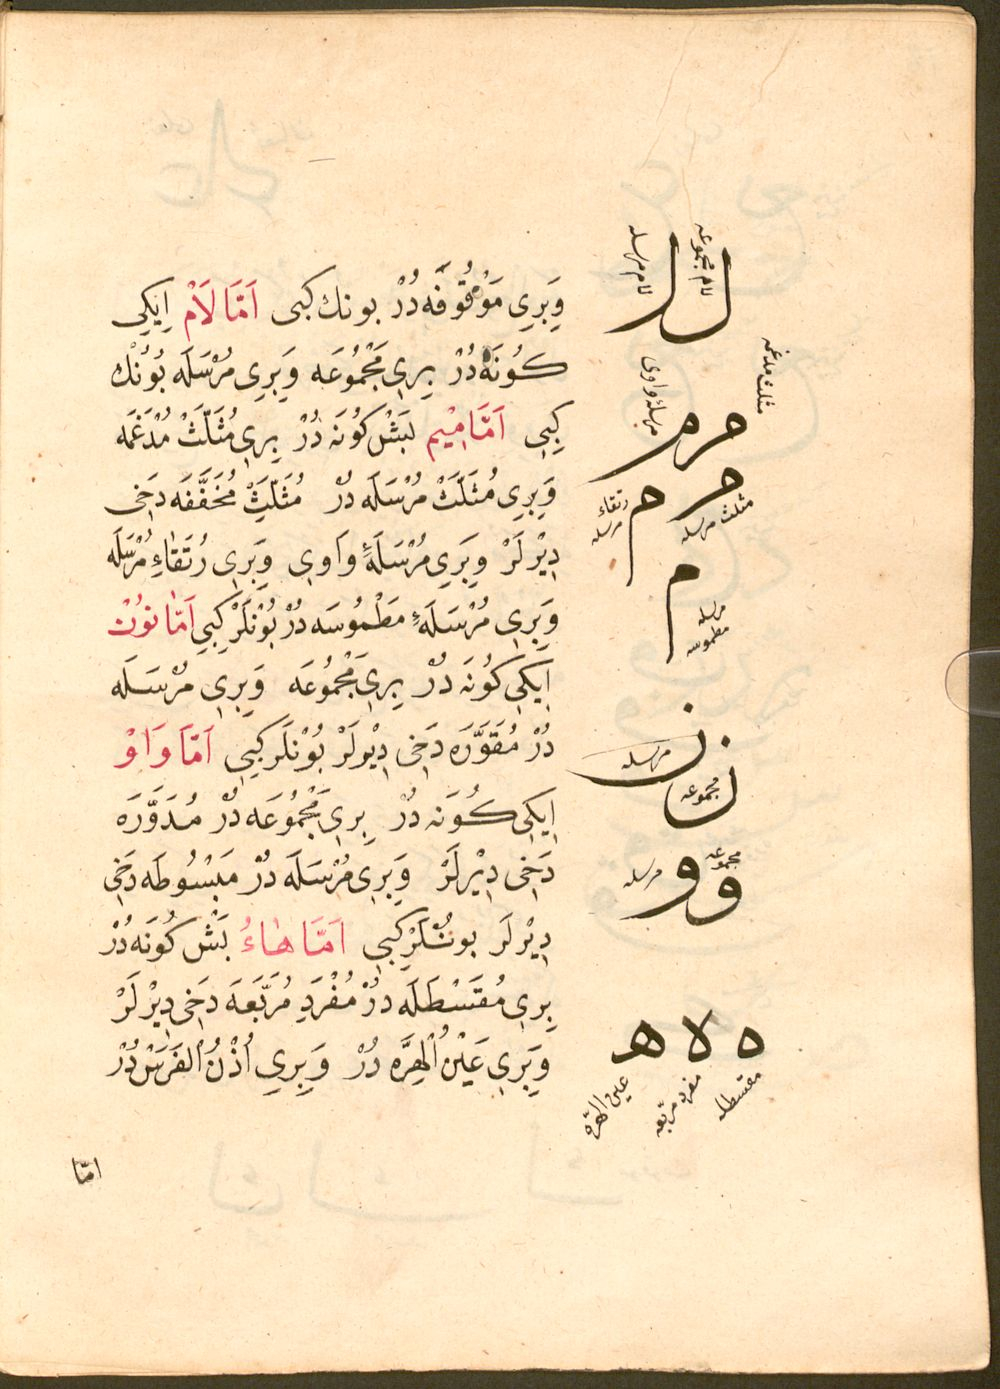 وَبِرِي مَوْقُوفَه دُرْ بونك كبى اَمَّا لَامْ اِيكِي
كُونَه دُرْ بِرِي مَجْمُوعَه وَبِرِي مُرْسَلَه بُونْك
كِبِي اَمَّا مِيْم بَشْ كُونَه دُرْ بِرِي مُثَلَّثْ مُدْغَمَه
وَبِرِي مُثَلَّثْ مُرْسَلَه دُرْ مُثَلَّثِ مُخَفَّفَه دَخِى
دِيْرلَرْ وَبِرِي مُرْسَلَهٔ وَاوِى وَبِرِى رُتَقَاءِ مُرْسَلَه
وَبِرِى مُرْسَلَهءِ مَطْمُوسَه دُرْ بُوْنلَرْ كِبِي اَمَّا نُوْنْ
اِيكِي كُونَه دُرْ بِرِي مَجْمُوعَه وَبِرِي مُرْسَلَه
دُرْ مُقَوَّرَه دَخِى دِيْرلَرْ بُوْنلَر كِبِي اَمَّا وَاوْ
اِيكِي كُونَه دُرْ بِرِي مَجْمُوعَه دُرْ مُدَوَّرَه
دَخِى دِيْرلَرْ وَبِرِي مُرْسَلَه دُرْ مَبْسُوطَه دَخِى
دِيْرلَر بونْلَرْ كِبِي اَمَّا هَاءُ بَشْ كُونَه دُرْ
بِرِي مُقَسْطَلَه دُرْ مُفْرَدِ مُرَبَّعَه دَخِى دِيْرلَرْ
وَبِرِي عَيْنُ الْهِرَّه دُرْ وَبِرِي اُذُنُ الْفَرَسْ دُرْ
امّا
لام مجموعه
لام مرسله
ل ل
مثلث مدغمه
مرسلۀ واوى
م م
مثلث مرسله
رتقاء مرسله
م م
م
مرسله مطموسه
ن ن
مرسله
مجموعه
و و
مجموعه
مرسله
ه لا هـ
مقسطله
مفرد مربّعه
عين الهرّه